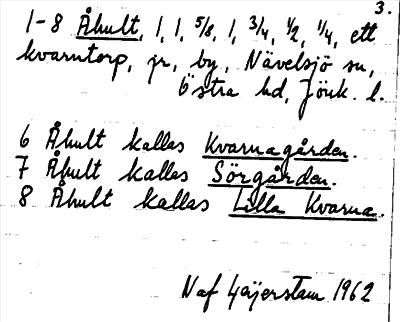 3.
1-8 Åhult, 1, 1, 5/8, 1, 3/4, 1/2, 1/4, ett
kvarntorp, jr, by, Nävelsjö sn,
Östra hd, Jönk. l.
6 Åhult kallas Kvarnagården.
7 Åhult kallas Sörgården.
8 Åhult kallas Lilla Kvarna.
Naf Gajerstam 1962